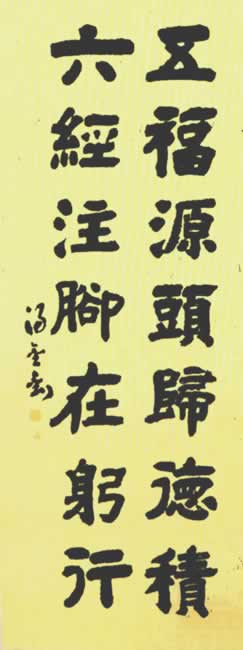 五福源頭歸德積
六經注腳在躬行